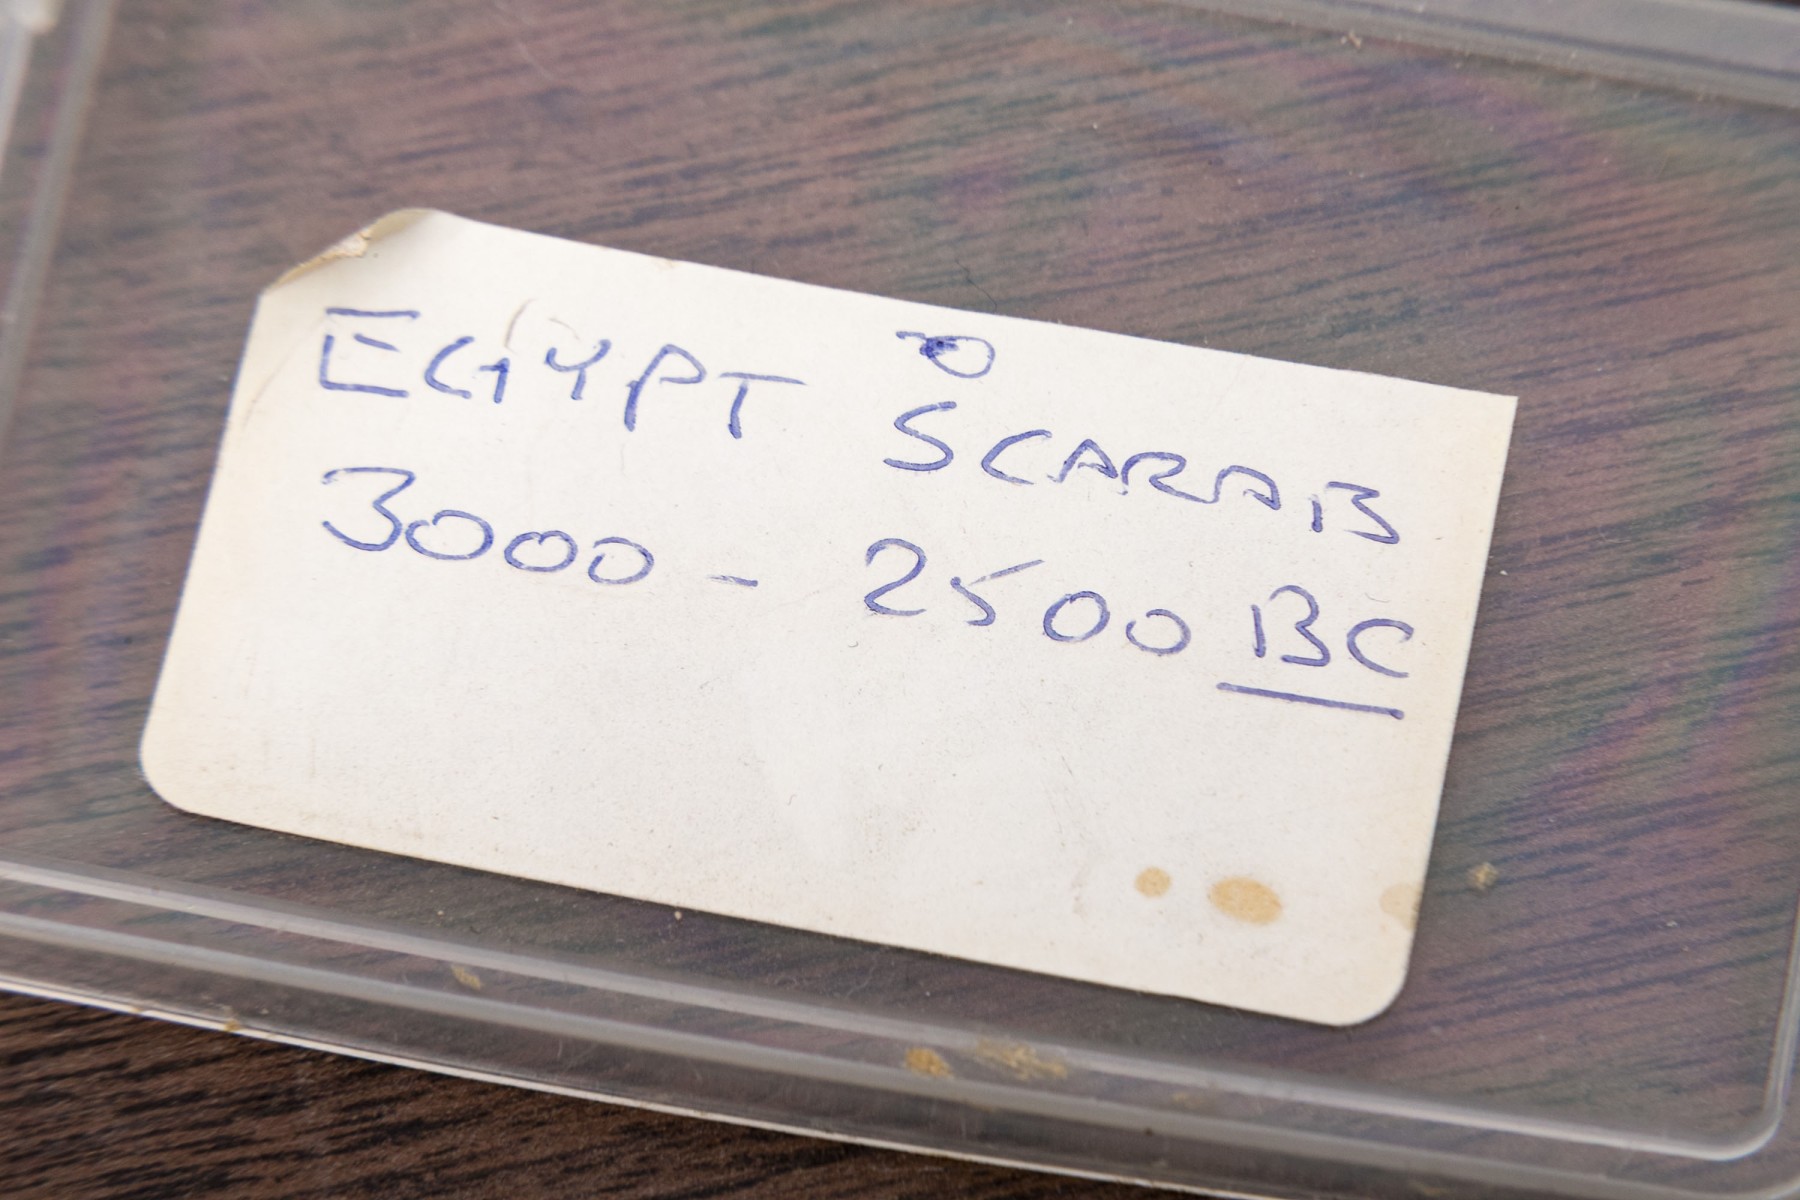 EGYPT SCARAB
3000 - 2500 BC